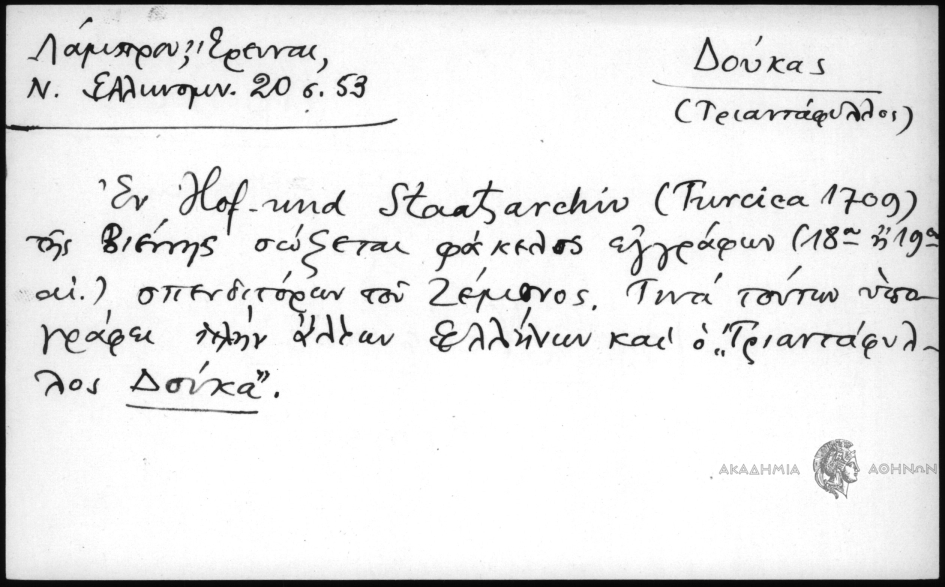 Λάμπρου, Ἔρευναι,
Ν. Ἑλληνομν. 20 σ. 53
Δούκας
(Τριαντάφυλλος)
Ἐν Hof-und Staatsarchiv (Turcica 1709)
τῆς Βιέννης σώζεται φάκελος ἐγγράφων (18ου ἢ 19ου
αἰ.) σπενδιτόρων τοῦ Ζέμονος. Τινά τούτων ὑπο-
γράφει πλὴν ἄλλων Ἑλλήνων καί ὁ „Τριαντάφυλ-
λος Δούκα".
ΑΚΑΔΗΜΙΑ ΑΘΗΝΩΝ